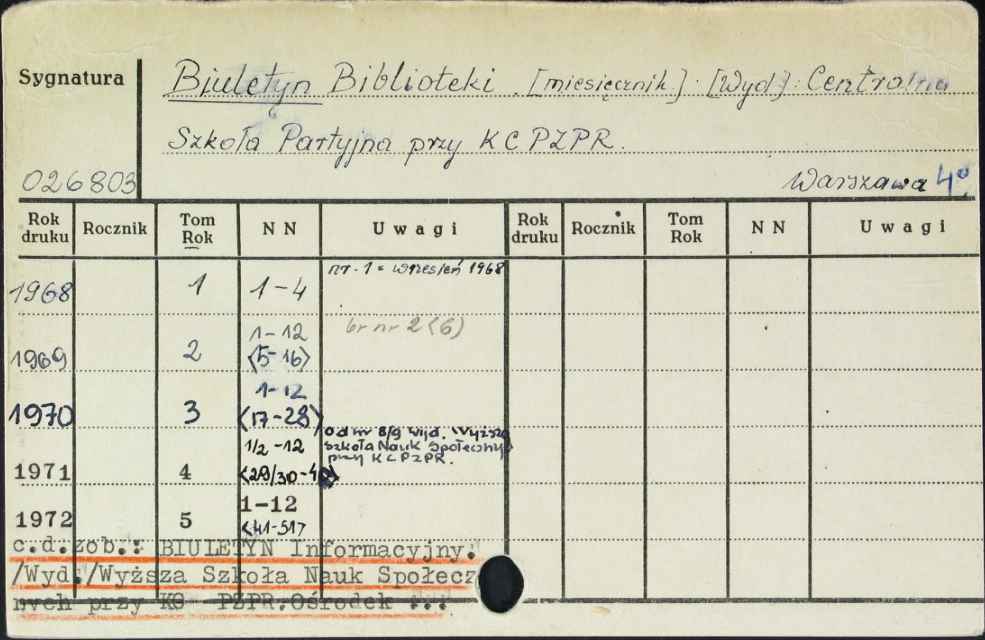 Sygnatura
Biuletyn Biblioteki. [miesięcznik]. [Wyd.]: Centralna
Szkoła Partyjna przy KC PZPR.
026803
Warszawa 4°
Rok druku Rocznik Tom Rok NN Uwagi Rok druku Rocznik Tom Rok NN Uwagi
1968 1 1-4 nr. 1 = wrzesień 1968
1969 2 1-12 <5-16> br nr 2 <6>
1970 3 1-12 <17-28>
1971 4 1/2-12 <29/30-40> od nr 8/9 wyd. Wyższa
Szkoła Nauk Społecznych
przy KC PZPR.
1972 5 1-12 <41-51>
c.d.zob.: BIULETYN Informacyjny.
/Wyd./Wyższa Szkoła Nauk Społecz
nych przy KC PZPR.Ośrodek ...